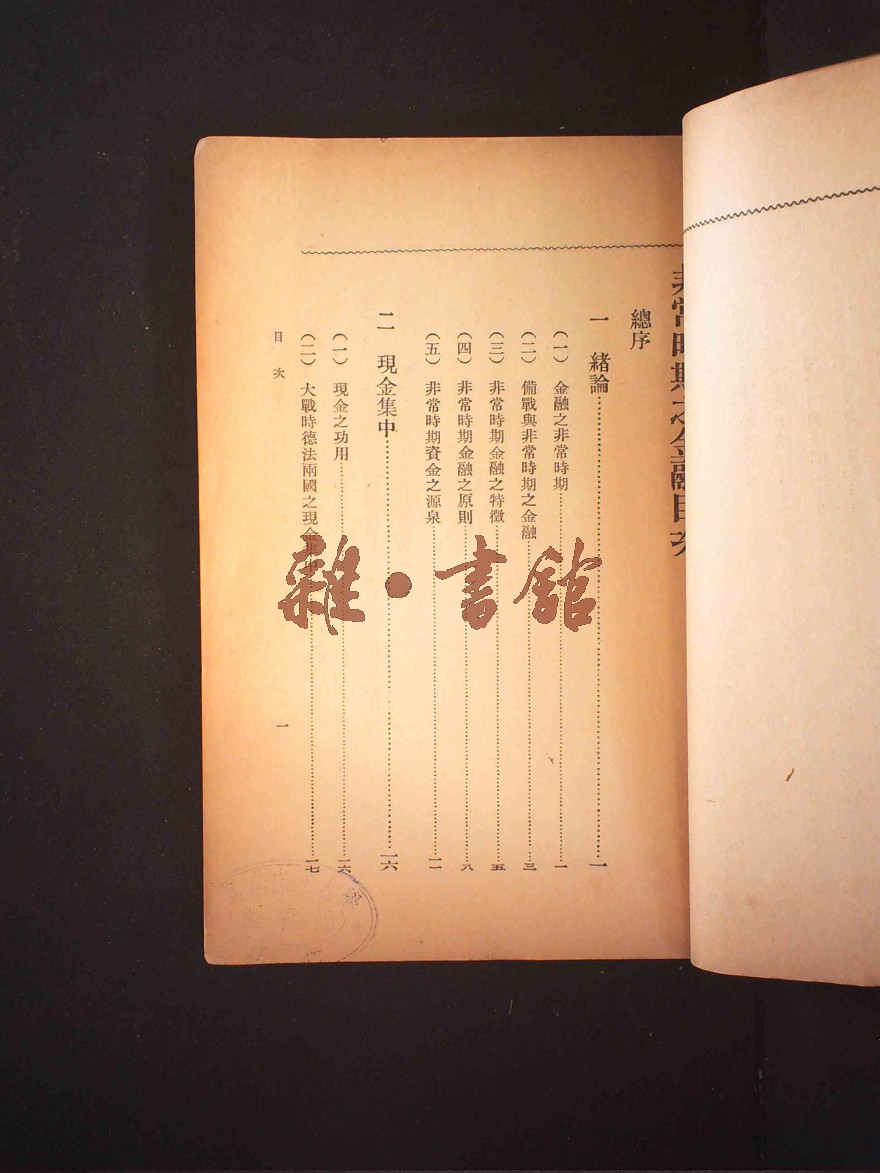 非常時期之金融目次
總序
一 緒論……一
（一） 金融之非常時期……一
（二） 備戰與非常時期之金融……三
（三） 非常時期金融之特徵……五
（四） 非常時期金融之原則……八
（五） 非常時期資金之源泉……一一
二 現金集中……一六
（一） 現金之功用……一六
（二） 大戰時德法兩國之現金集中……一七
目次
一
雜・書館